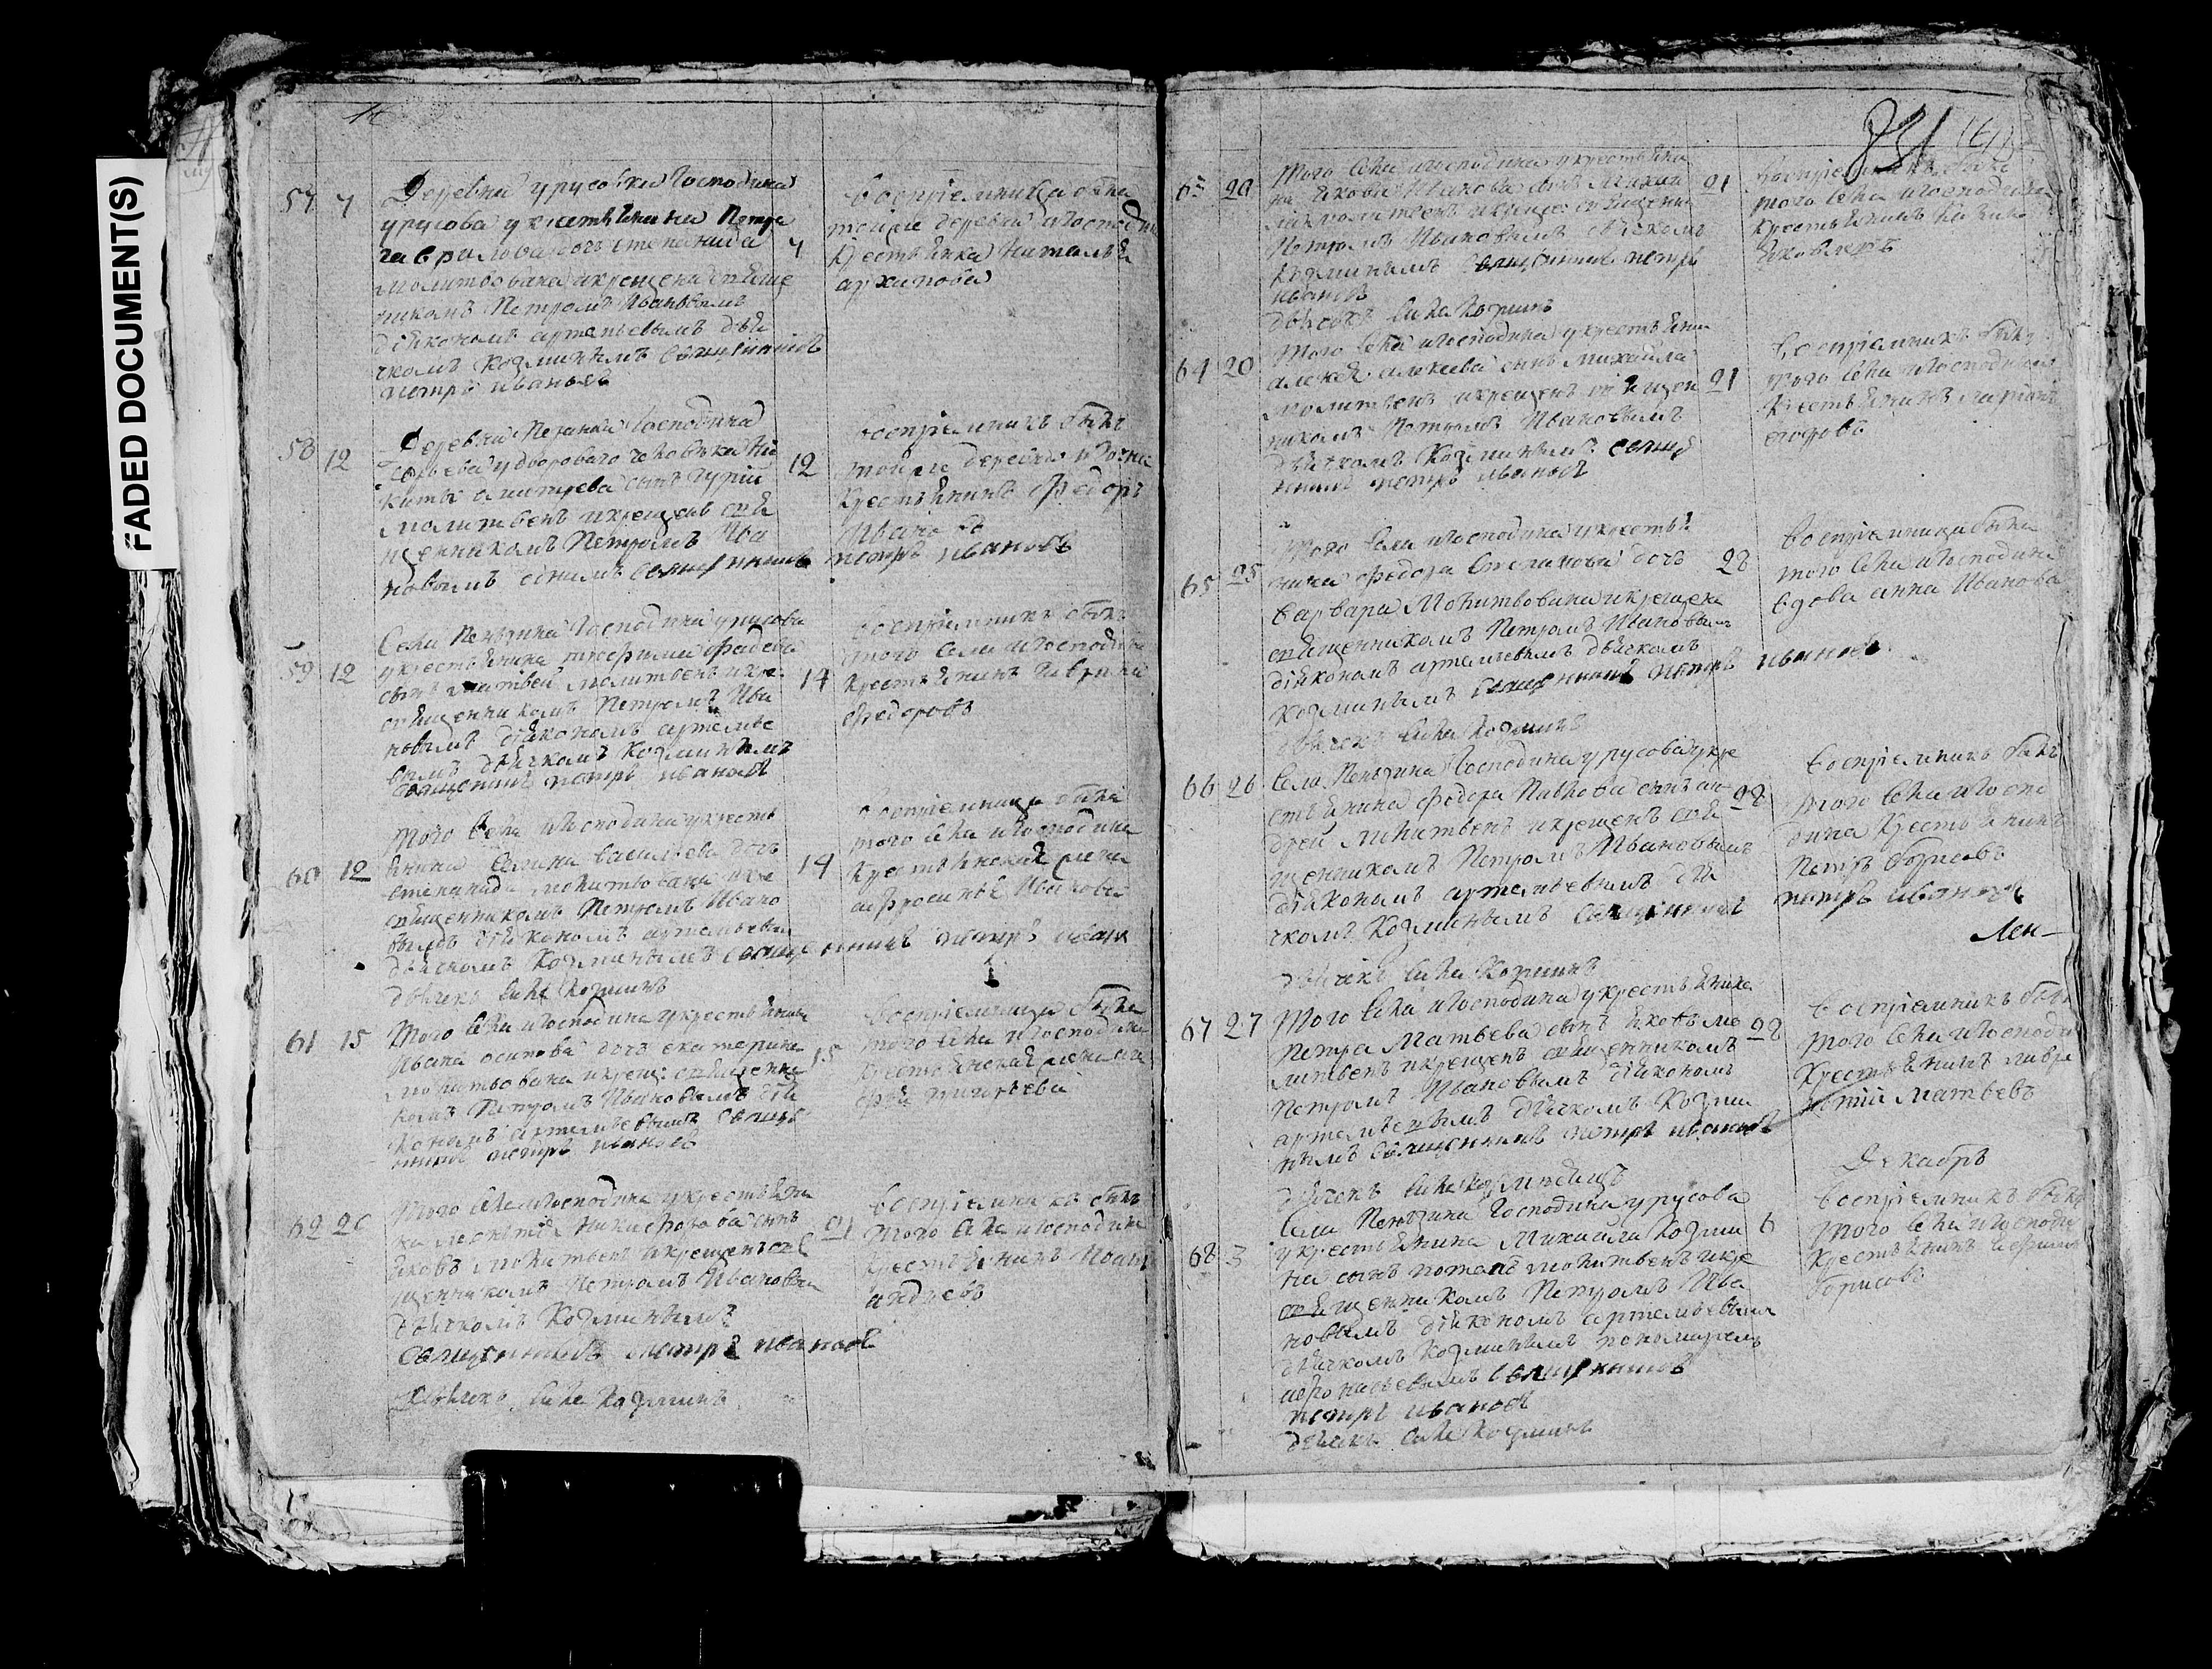 FADED DOCUMENT(S)
57 7 Деревни урусовки Господина
урусова у крестьянина Петра
гаврилова дочь степанида 7
молитвована и крещена священ
никомъ Петромъ Ивановымъ
діякономъ артемьевымъ дья
чкомъ козминымъ священникъ
петръ ивановъ
восприемница была
тойже деревни и господина
крестьянка наталья
архипова
58 12 Деревни Господина
у двороваго человека Ни
киты дмитрева сынъ гурий 12
молитвенъ и крещенъ свя
щенникомъ Петромъ Ива
новымъ однимъ священникъ петръ ивановъ
восприемникъ былъ
тойже деревни
крестьянинъ Федоръ
Ивановъ
59 12 Села Пензина Господина урусова
у крестьянина трофима фадеева
сынъ матвей молитвенъ и кре 14
священникомъ Петромъ Ива
новымъ діякономъ артемье
вымъ дьячкомъ Козминымъ
священникъ петръ ивановъ
восприемникъ былъ
того села и господина
крестьянинъ гаврила
Федоровъ
60 12 Того села и господина у кресть
янина васильева дочь
степанида молитвована и кре 14
священникомъ Петромъ Ивано
вымъ діякономъ артемьевым
дьячкомъ Козминымъ священникъ петръ иванов
дьячекъ сила козминъ
восприемница была
того села и господина
крестьянская жена
афросинья Иванова
61 15 Того села и господина у крестьянина
Ивана осипова дочь екатерина 15
молитвована и крещ: священни
комъ Петромъ Ивановымъ дія
кономъ артемьевымъ священ
никъ петръ ивановъ
восприемница была
того села и господина
крестьянская жена
григорьева
62 20 Того села и господина у крестьяни
на никифорова сынъ 21
яковъ молитвенъ и крещенъ свя
щенникомъ Петромъ Ивановым
дьячкомъ Козминымъ
священникъ петръ ивановъ
дьячекъ сила козминъ
восприемникъ былъ
того села и господина
крестьянинъ
андреевъ
831
63 20 Того села и господина у крестьяни
на Якова Иванова сынъ Михаи 21
ла молитвенъ и крещенъ священни
Петромъ Ивановымъ дьячкомъ
Козминымъ священникъ петръ
ивановъ
дьячекъ сила козминъ
восприемникъ былъ
того села и господина
крестьянинъ
Яковлевъ
64 20 Того села и господина у крестьяни
алексея алексеева сынъ михайла
молитвенъ и крещенъ священ 21
никомъ Петромъ Ивановымъ
дьячкомъ Козминымъ священ
никъ петръ ивановъ
восприемникъ былъ
того села и господина
крестьянинъ
егоровъ
65 25 Того села и господина у крестья
нина федора Степанова дочь 28
варвара молитвована и крещена
священникомъ Петромъ Ивановым
діякономъ артемьевымъ дьячкомъ
козминымъ священникъ петръ ивановъ
дьячекъ сила козминъ
восприемница была
того села и господина
вдова анна Иванова
66 26 Села Пензина Господина урусова у кре
стьянина федора Павлова сынъ ан 28
дрей молитвенъ и крещенъ свя
щенникомъ Петромъ Ивановымъ
діякономъ артемьевымъ дья
чкомъ Козминымъ священникъ петръ ивановъ
дьячекъ сила козминъ
восприемникъ былъ
того села и госпо
дина крестьянинъ
Петръ борисовъ
67 27 Того села и господина у крестьянина
Петра Матвеева сынъ яковъ мо 28
литвенъ и крещенъ священникомъ
Петромъ Ивановымъ діякономъ
артемьевымъ дьячкомъ Козми
нымъ священникъ петръ ивановъ
дьячекъ сила козминъ
восприемникъ былъ
того села и господи
крестьянинъ лавре
нтий матвеевъ
Декабрь
68 3 Села Пензина Господина урусова
у крестьянина Михаила Козми 6
на сынъ потапъ молитвенъ и кре
священникомъ Петромъ Ива
новымъ діякономъ артемьевымъ
дьячкомъ Козминымъ пономаремъ
афонасьевымъ священникъ
петръ ивановъ
дьячекъ сила козминъ
восприемникъ былъ
того села и господи
крестьянинъ
борисовъ